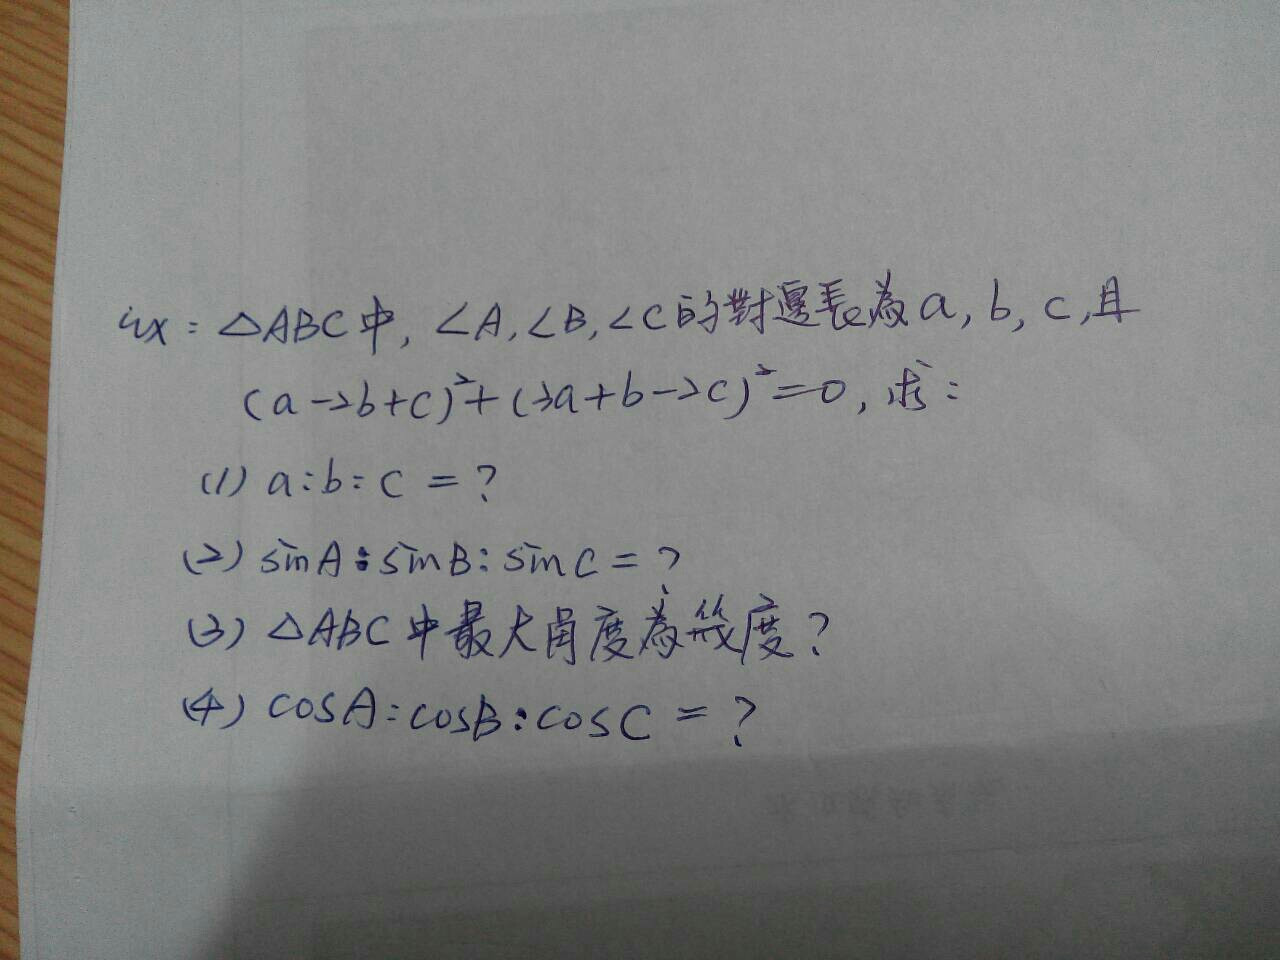 ex: △ABC中, ∠A, ∠B, ∠C的對邊長為a, b, c, 且
(a-2b+c)²+(3a+b-2c)²=0, 求:
(1) a:b:c = ?
(2) sinA:sinB:sinC = ?
(3) △ABC中最大角度為幾度?
(4) cosA:cosB:cosC = ?